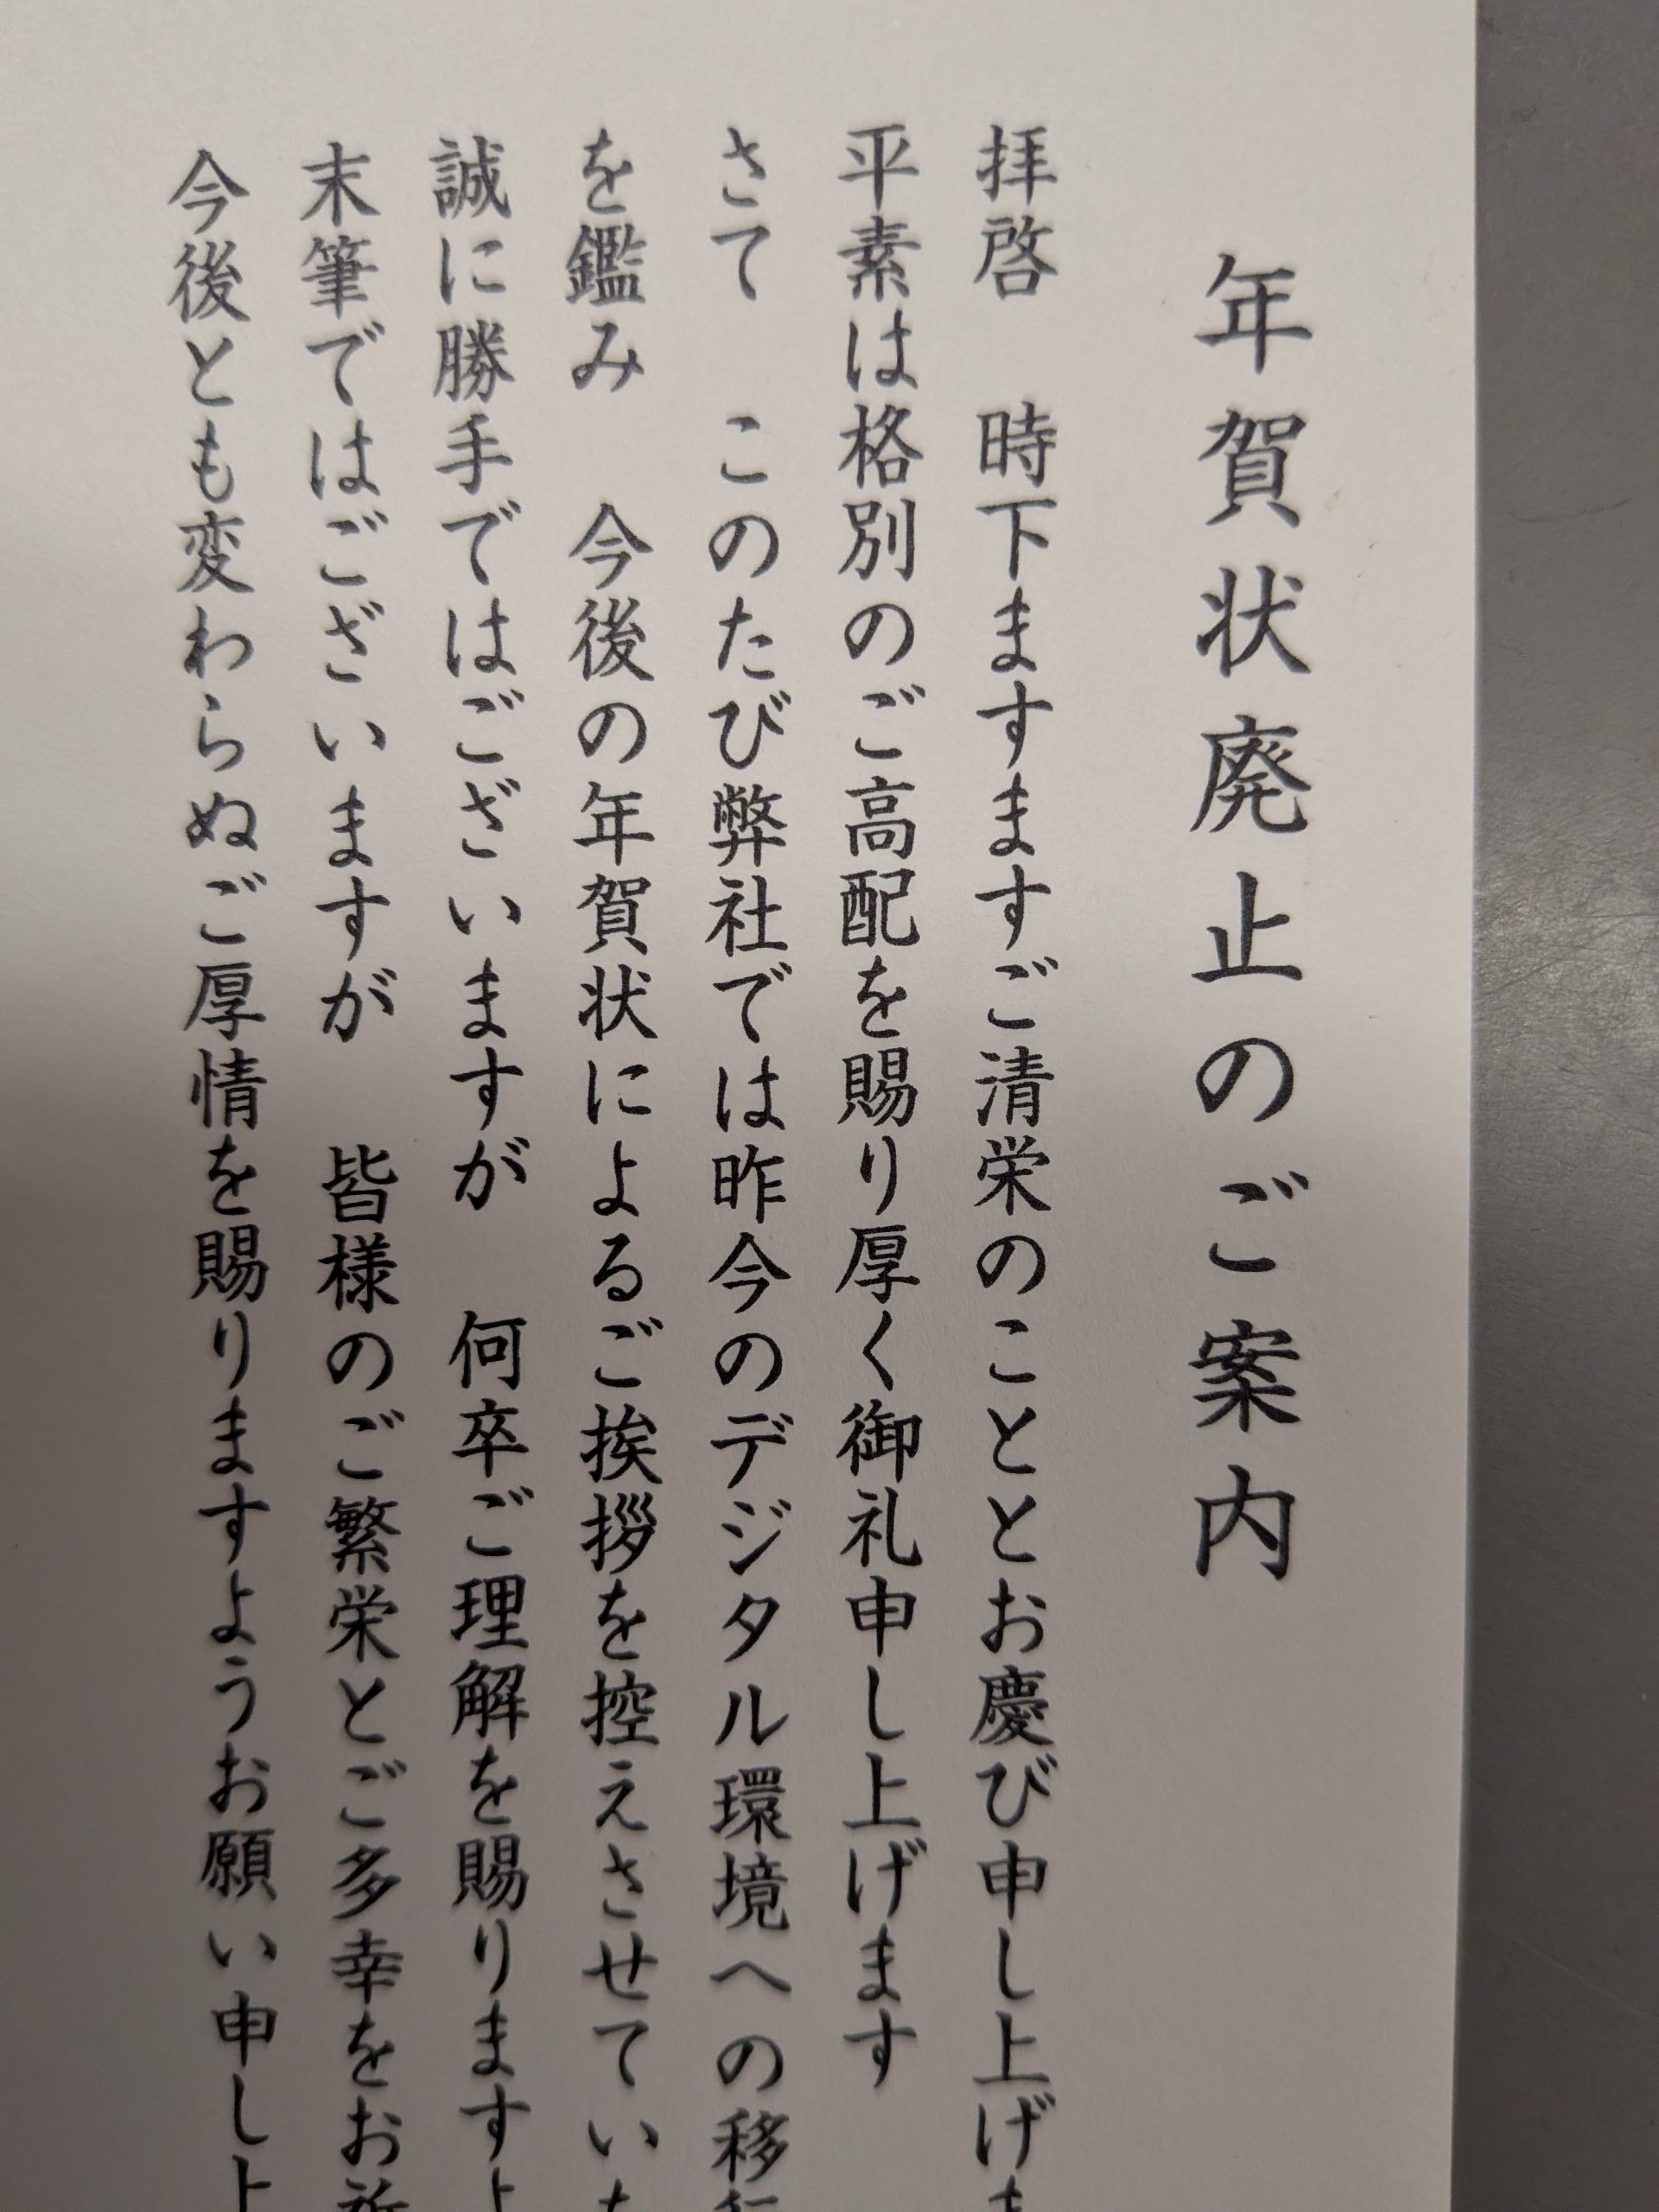 年賀状廃止のご案内
拝啓　時下ますますご清栄のこととお慶び申し上げま
平素は格別のご高配を賜り厚く御礼申し上げます
さて　このたび弊社では昨今のデジタル環境への移
を鑑み　今後の年賀状によるご挨拶を控えさせてい
誠に勝手ではございますが　何卒ご理解を賜ります
末筆ではございますが　皆様のご繁栄とご多幸をお
今後とも変わらぬご厚情を賜りますようお願い申し